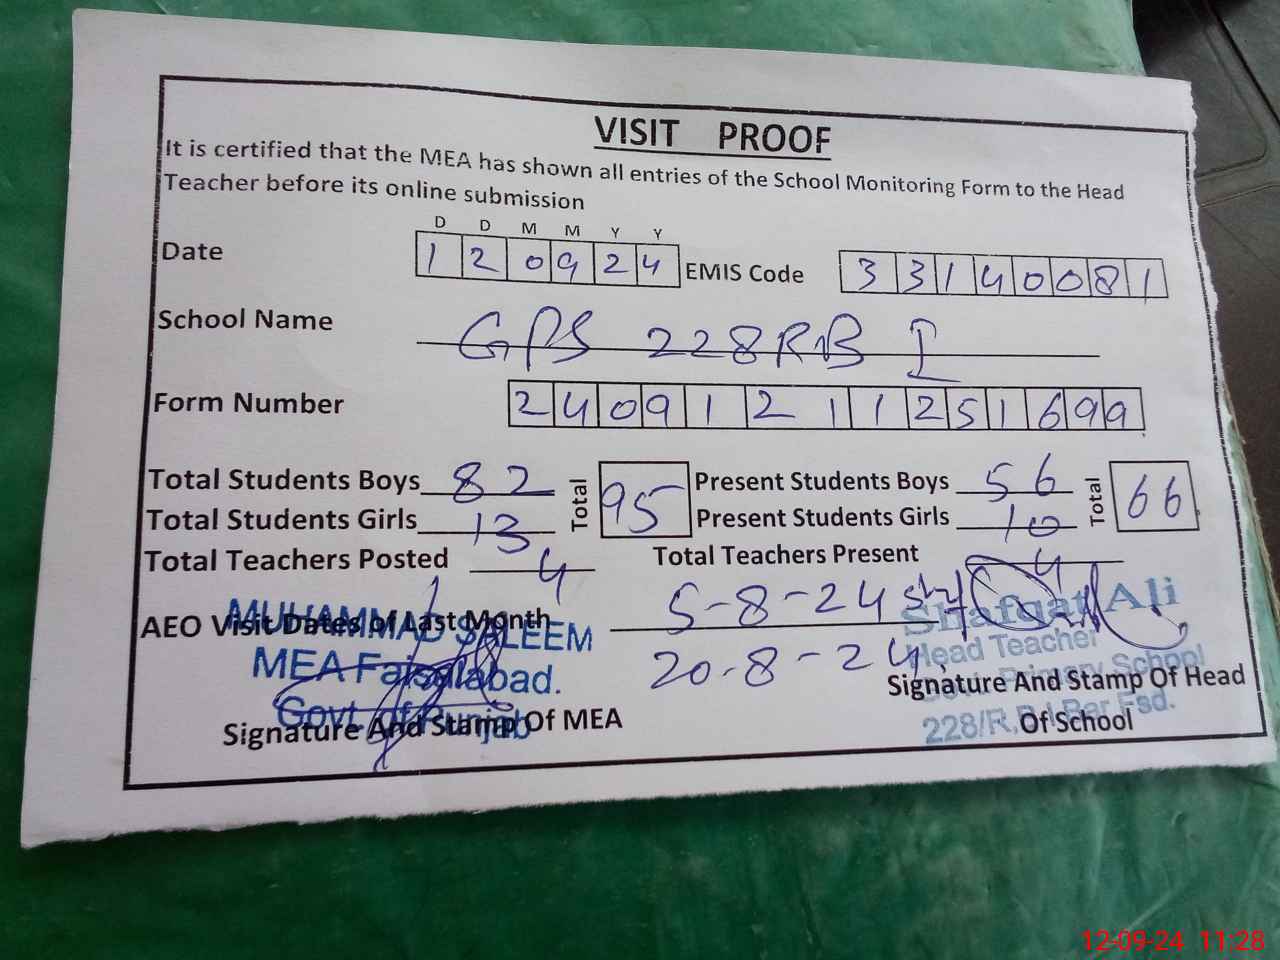 VISIT PROOF
It is certified that the MEA has shown all entries of the School Monitoring Form to the Head
Teacher before its online submission
D D M M Y Y
Date 1 2 0 9 2 4 EMIS Code 3 3 1 4 0 0 8 1
School Name GPS 228RB I
Form Number 2 4 0 9 1 2 1 1 2 5 1 6 9 9
Total Students Boys 82 Total 95 Present Students Boys 56 Total 66
Total Students Girls 13 Present Students Girls 10
Total Teachers Posted 4 Total Teachers Present 4
AEO Visit Dates of Last Month 5-8-24
20-8-24
MUHAMMAD SALEEM
MEA Faisalabad.
Govt. of Punjab
Signature And Stamp Of MEA
Shafqat Ali
Head Teacher
Primary School
228/R.B
Fsd.
Signature And Stamp Of Head
Of School
12-09-24 11:28